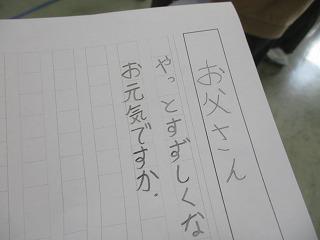 お父さん
やっとすずしくな
お元気ですか.